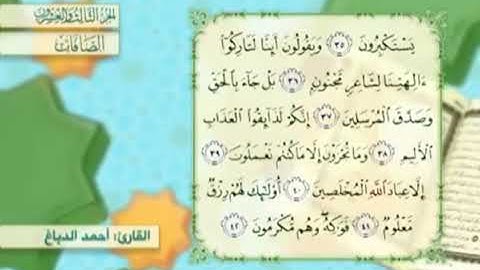 الجزء الثالث والعشرون
الصافات
يَسْتَكْبِرُونَ ٣٥ وَيَقُولُونَ أَئِنَّا لَتَارِكُوٓا۟
ءَالِهَتِنَا لِشَاعِرٍ مَّجْنُونٍۭ ٣٦ بَلْ جَآءَ بِٱلْحَقِّ
وَصَدَّقَ ٱلْمُرْسَلِينَ ٣٧ إِنَّكُمْ لَذَآئِقُوا۟ ٱلْعَذَابِ
ٱلْأَلِيمِ ٣٨ وَمَا تُجْزَوْنَ إِلَّا مَا كُنتُمْ تَعْمَلُونَ ٣٩
إِلَّا عِبَادَ ٱللَّهِ ٱلْمُخْلَصِينَ ٤٠ أُو۟لَٰٓئِكَ لَهُمْ رِزْقٌ
مَّعْلُومٌ ٤١ فَوَٰكِهُ ۖ وَهُم مُّكْرَمُونَ ٤٢
القارئ: أحمد الدباغ